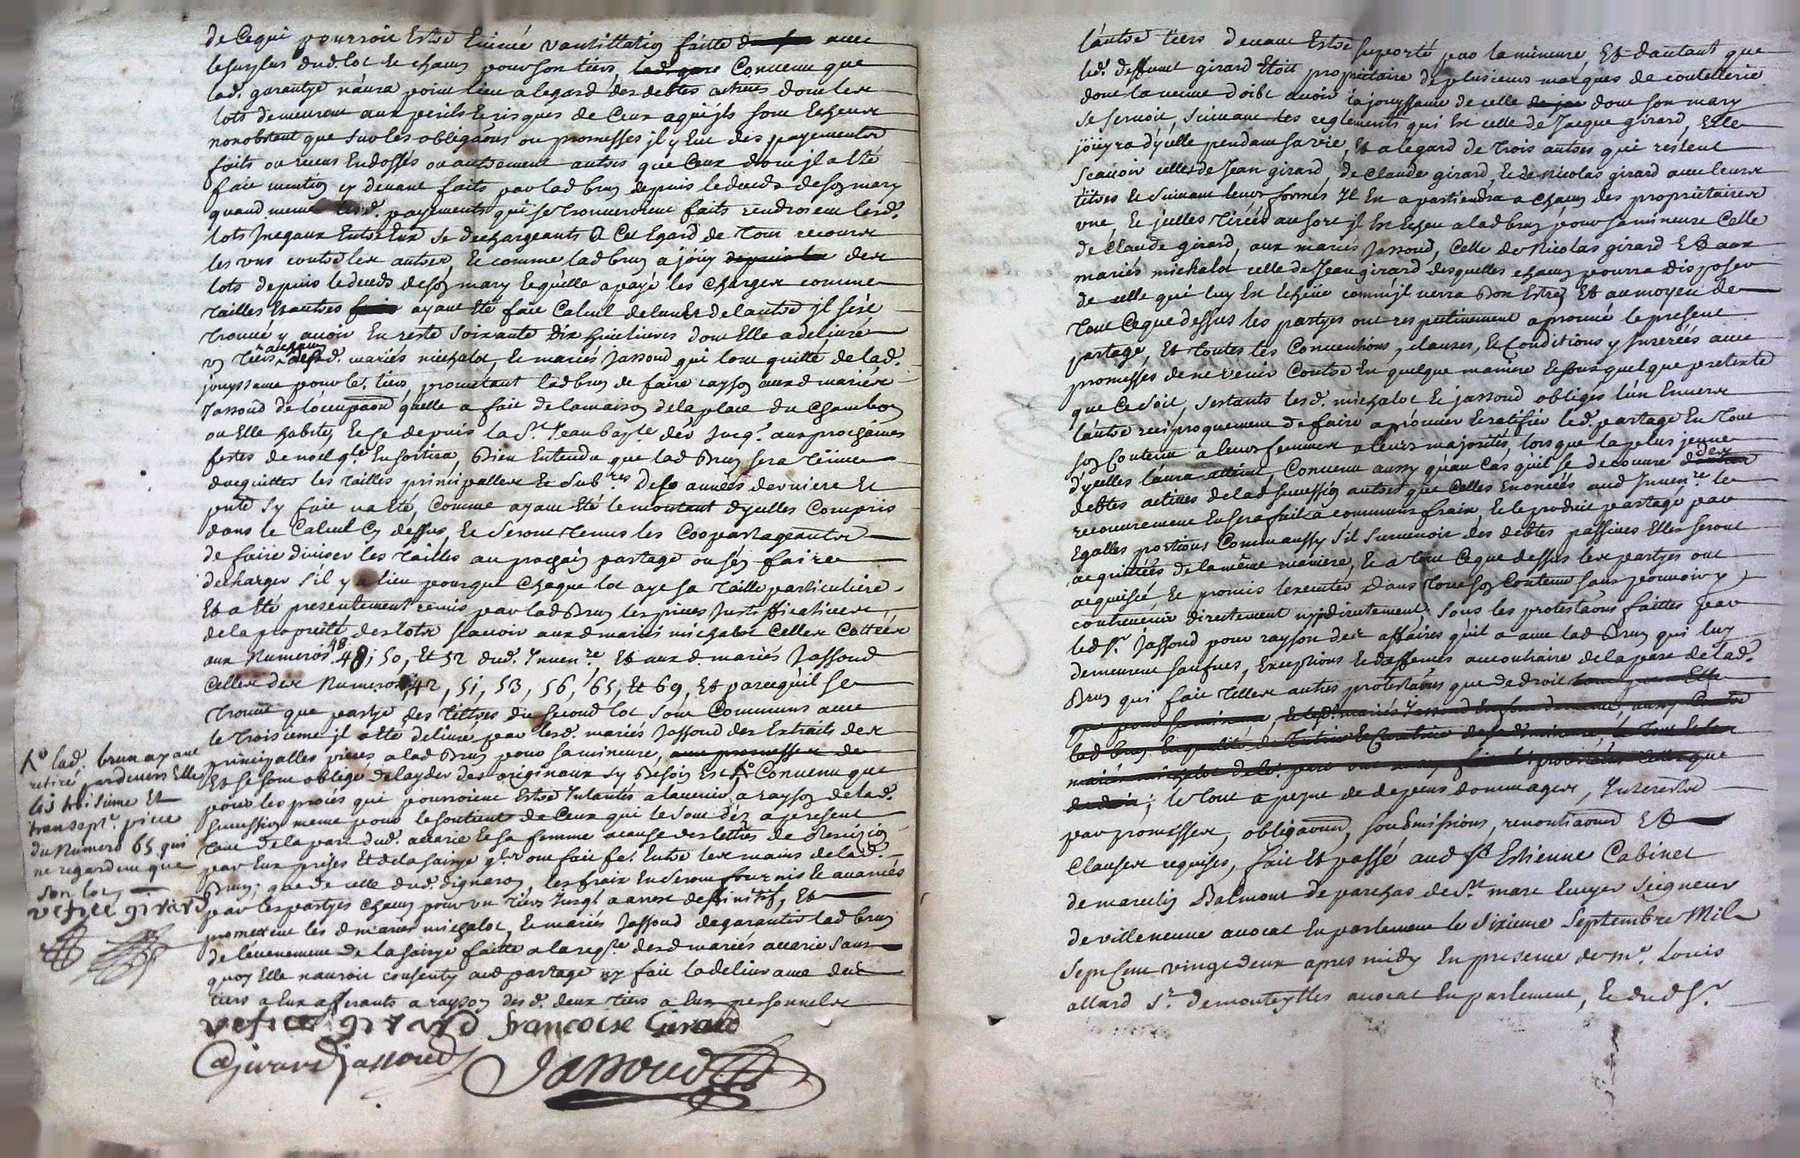 de ce qui pourroit Estre Evincé vantillation faitte avec
le surplus dud. lot de chacun pour son tiers, Convenu que
lad. garantye n'aura point lieu a legard des debtes actives dont les
lots demeurent aux perils et risques de Ceux a qui ils sont Echeus
nonobstant que sur les obligaons ou promesses il y Eut des payements
faits ou receus Endossés ou autrement autres que Ceux dont il a Eté
fait mention cy devant faits par lad brun depuis le deceds de son mary
quand meme lesd. payements qui se trouveroient faits rendroient lesd.
lots Inegaux Entre Eux se dechargeants a Cet Egard de tout recours
les uns contre les autres, Et comme lad brun a jouy des
lots depuis le deceds de son mary et qu'elle a payé les charges comme
tailles Et autres ayant Eté fait Calcul de l'un Et de l'autre il s'est
trouvé y avoir En reste soixante dix huit livres dont Elle a delivré
un tiers a chacun desd. mariés michalot, et mariés Jassoud qui l'ont quitte de lad.
jouyssance pour led. tiers, promettant lad brun de faire rayson auxd mariés
Jassoud de l'occupaon qu'elle a fait de la maison de la place du Chambon
ou Elle habite, Et ce depuis la St Jean bapte der jusq. aux prochaines
festes de noel qlle En sortira, Bien Entendu que lad Brun sera tenue
d'acquitter les tailles principalles Et sub.res des années derniere Et
pnte s'y fait n'a Eté, Comme ayant Eté le montant d'ycelles Compris
dans le Calcul Cy dessus, Et seront tenus les Coopartageants
de faire diviser les tailles au prochain partage ou s'en faire
decharger s'il y a lieu pour que chaque lot aye sa taille particuliere,
Et a Eté presentement remis par lad Brun les pieces Justifficatives
de la proprieté des lots scavoir auxd mariés michalot Celles Cottées
aux Numeros 48, 50, Et 52 dud. Inven.re Et auxd mariés Jassoud
Celles des Numeros 42, 51, 53, 56, 65, Et 69, Et parcequ'il se
trouve que partye des tiltres du second lot sont Communs avec
le troisieme il a Eté delivré par lesd. mariés Jassoud des Extraits des
principalles pieces a lad Brun pour sa mineure,
Et se sont obligé de l'ayder des originaux s'y Besoin Est Convenu que
pour les procés qui pourroient Estre Intantés a l'avenir a rayson de lad.
succession meme pour le soutient de Ceux qui le sont dez a present
tant de la part dud. accarie Et sa femme a cause des lettres de Rescizion
par Eux prises Et de la saisye qls ont fait fe. Entre les mains de lad.
Brun, que de celle dud. digneron, les fraix En seront fournis Et avancés
par les partyes chacun pour un tiers Jusqu'a arrest deffinitif, Et
promettent les d mariés michalot, Et mariés Jassoud de garantir lad brun
de l'evenement de la saisye faitte a la reqte desd mariés accarie sans
quoy Elle n'auroit consenty aud partage ny fait la delivrance des
tiers a Eux afferants a rayson desd. deux tiers a Eux personnels
lad. brun ayant
retiré pardevers Elle
les troisieme Et
piece
du Numero 65 qui
ne regardent que
son lot,
vefve girard
vefve girard francoise Girard
Girard Jassoud Jassoud
l'autre tiers devant Estre suporté par la mineure, Et d'autant que
led. deffunct girard Etoit proprietaire de plusieurs marques de coutellerie
dont la veuve doibt avoir la jouyssance de celle dont son mary
se servoit, suivant les reglements qui Est celle de Jacque girard, Elle
jouyra d'ycelle pendant sa vie, Et a legard de trois autres qui restent
Scavoir celles de Jean girard, de Claude girard, Et de Nicolas girard avec leurs
tiltres Et suivant leurs formes Il En apartiendra a chacun des proprietaires
une, Et jcelles tirées au sort il Est Echeu a lad brun pour sa mineure Celle
de Claude girard, aux mariés Jassoud, Celle de Nicolas girard Et aux
mariés michalot celle de Jean girard desquelles chacun pourra disposer
de celle qui luy Est Echeüe comm'il verra Bon Estre, Et au moyen de
tout Ceque dessus les partyes ont respectivement aprouvé le present
partage, Et toutes les Conventions, clauses, Et Conditions y Inserées avec
promesses de ne venir Contre En quelque maniere Et sous quelque pretexte
que Ce soit, restants lesd. michalot Et jassoud obligés l'un Envers
l'autre reciproquement de faire aprouver Et ratifier led. partage En tout
son Contenu a leurs femmes a leurs majorités, lorsque la plus jeune
d'ycelles l'aura atteint, Convenu aussy qu'au Cas qu'il se decouvre des
debtes actives de lad succession autres que Celles Enoncées aud Inven.re le
recouvrement En sera fait a communs fraix Et le produit partagé par
Egalles portions Comm'aussy s'il survenoit des debtes passives Elles seront
acquittées de la même maniere, Et a tout Ceque dessus les partyes ont
acquiescé Et promis l'executer dans tout son Contenu sans pouvoir y
contrevenir directement ny indirectement, sous les protestaons faittes par
led Sr. Jassoud pour rayson des affaires qu'il a avec lad Brun qui luy
demeurent sauves, Exceptions Et deffences au contraire de la part de lad.
Brun qui fait telles autres protestaons que de droit
; le tout a peyne de depens dommages, Interests
par promesses, obligaons, soubmissions, renontiaons Et
Clauses requises, fait Et passé aud St Estienne Cabinet
de mre Balmont de parchas de St marc Ecuyer Seigneur
de villeneuve avocat En parlement le sixieme Septembre Mil
sept Cent vingt deux apres midy En presence de mr. Louis
allard Sr. de monteylles avocat En parlement, Et dud Sr.